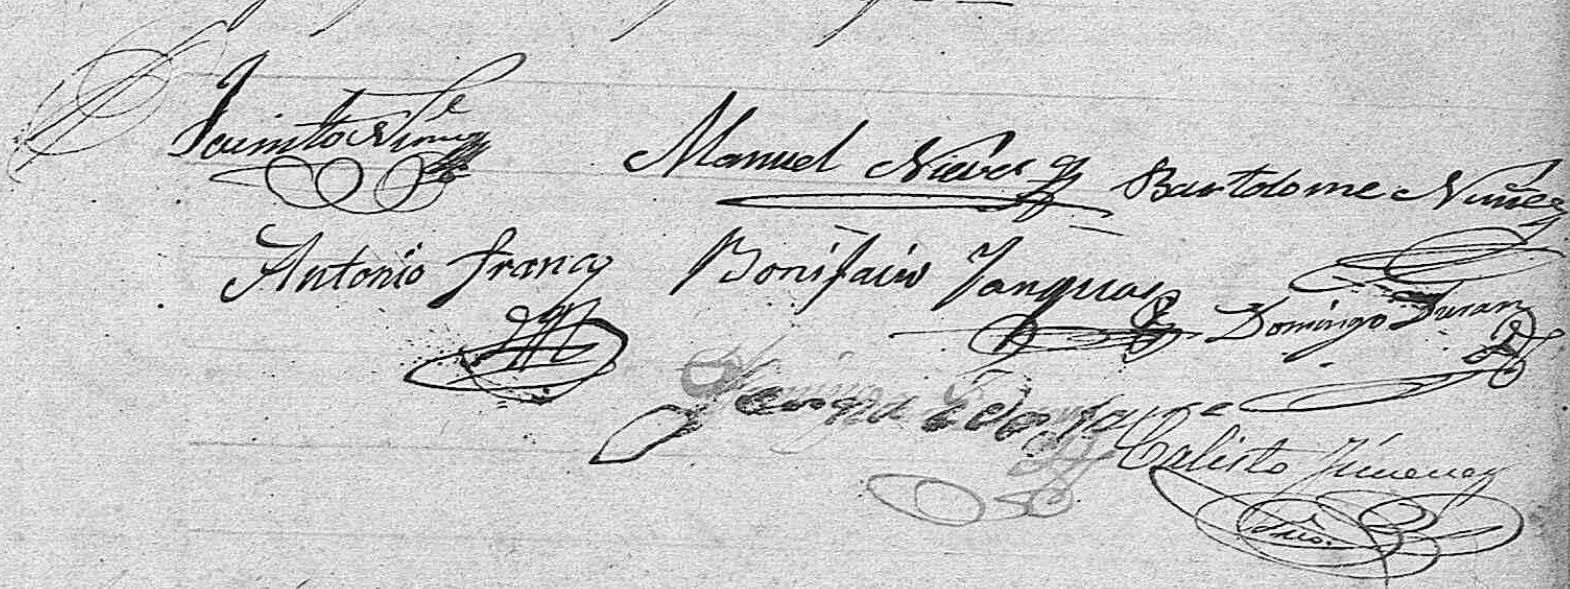 Jacinto Nuñez Manuel Nieves Bartolome Nuñez
Antonio Franco Bonifacio Tanguas Domingo Duran
Calisto Jimenez
Srio.